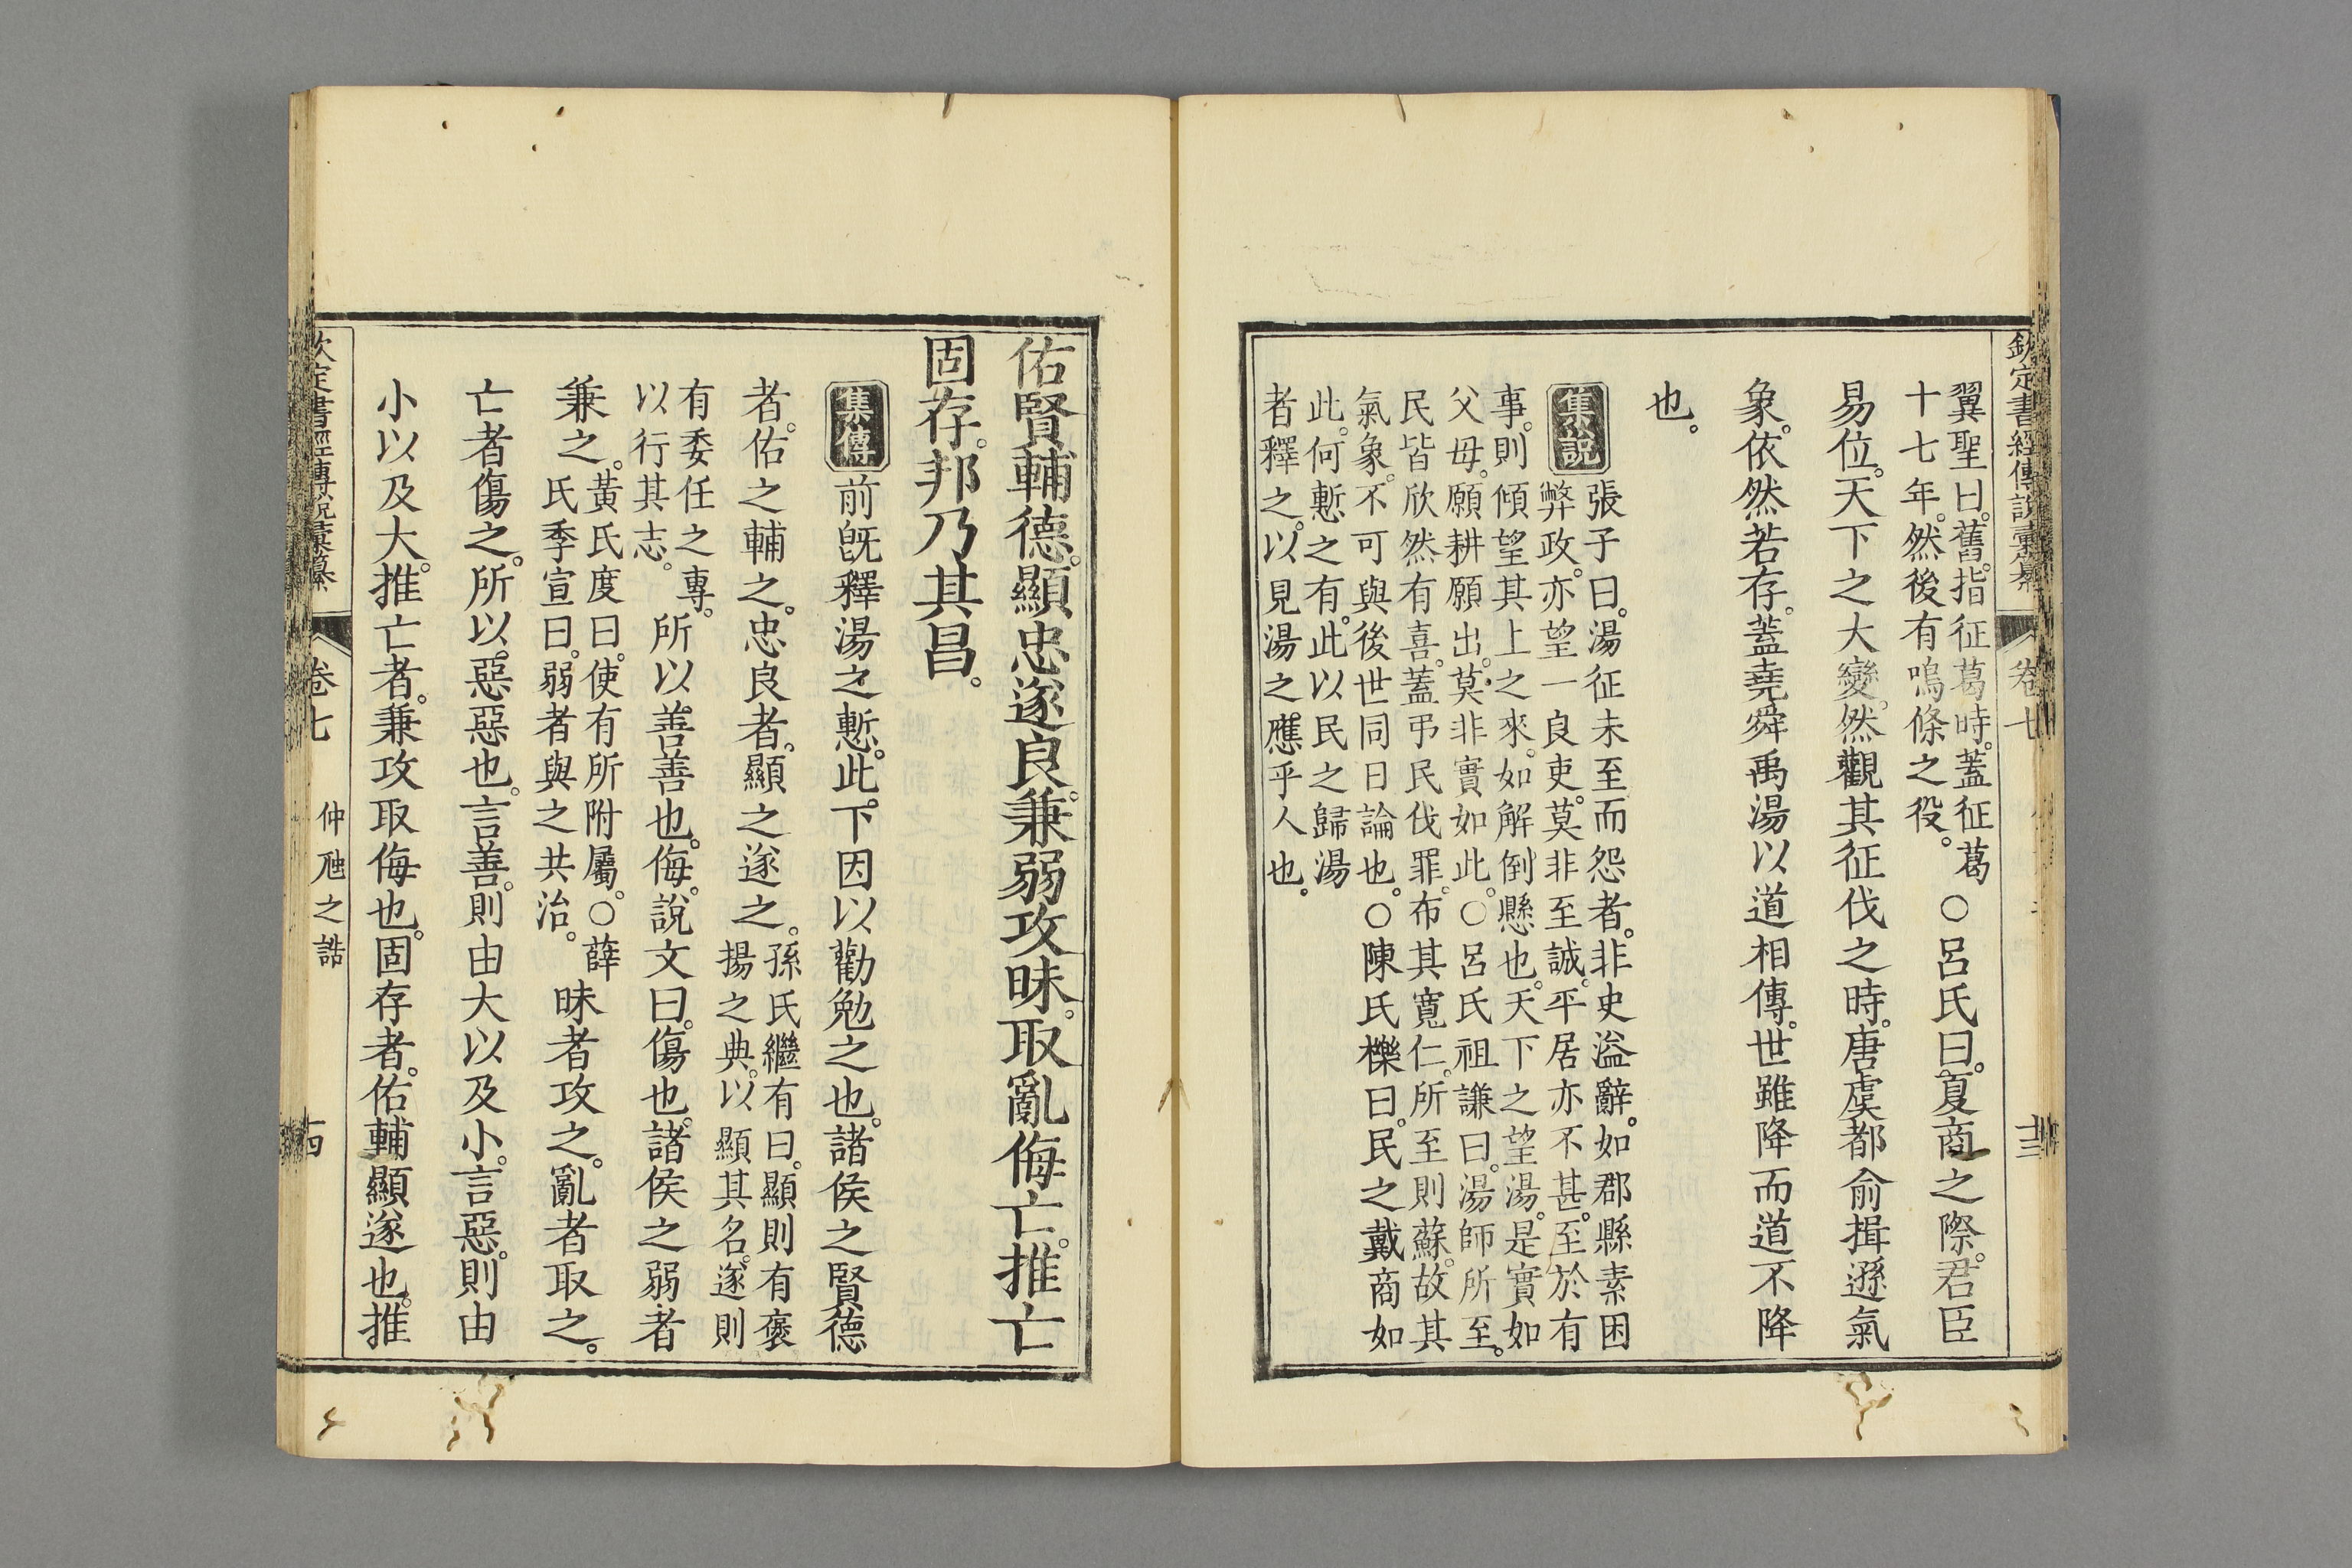 欽定書經傳說彙纂 卷七 十三
翼聖曰。舊。指征葛時。蓋征葛
十七年。然後有鳴條之役。
○呂氏曰。夏商之際。君臣
易位。天下之大變。然觀其征伐之時。唐虞都俞揖遜氣
象。依然若存。蓋堯舜禹湯以道相傳。世雖降而道不降
也。
集說
張子曰。湯征未至而怨者。非史溢辭。如郡縣素困
弊政。亦望一良吏。莫非至誠。平居亦不甚。至於有
事。則傾望其上之來。如解倒懸也。天下之望湯。是實如
父母。願耕願出。莫非實如此。○呂氏祖謙曰。湯師所至。
民皆欣然有喜。蓋弔民伐罪。布其寬仁。所至則蘇。故其
氣象。不可與後世同日論也。○陳氏櫟曰。民之戴商如
此。何慙之有。此以民之歸湯
者釋之。以見湯之應乎人也。
佑賢輔德。顯忠遂良。兼弱攻昧。取亂侮亡。推亡
固存。邦乃其昌。
集傳
前旣釋湯之慙。此下。因以勸勉之也。諸侯之賢德
者。佑之輔之。忠良者。顯之遂之。
孫氏繼有曰。顯則有褒
揚之典。以顯其名。遂則
有委任之專。
以行其志。
所以善善也。侮。說文曰。傷也。諸侯之弱者
兼之。
黃氏度曰。使有所附屬。○薛
氏季宣曰。弱者與之共治。
昧者攻之。亂者取之。
亡者傷之。所以惡惡也。言善。則由大以及小。言惡。則由
小以及大。推亡者。兼攻取侮也。固存者。佑輔顯遂也。推
欽定書經傳說彙纂 卷七 仲虺之誥 十四